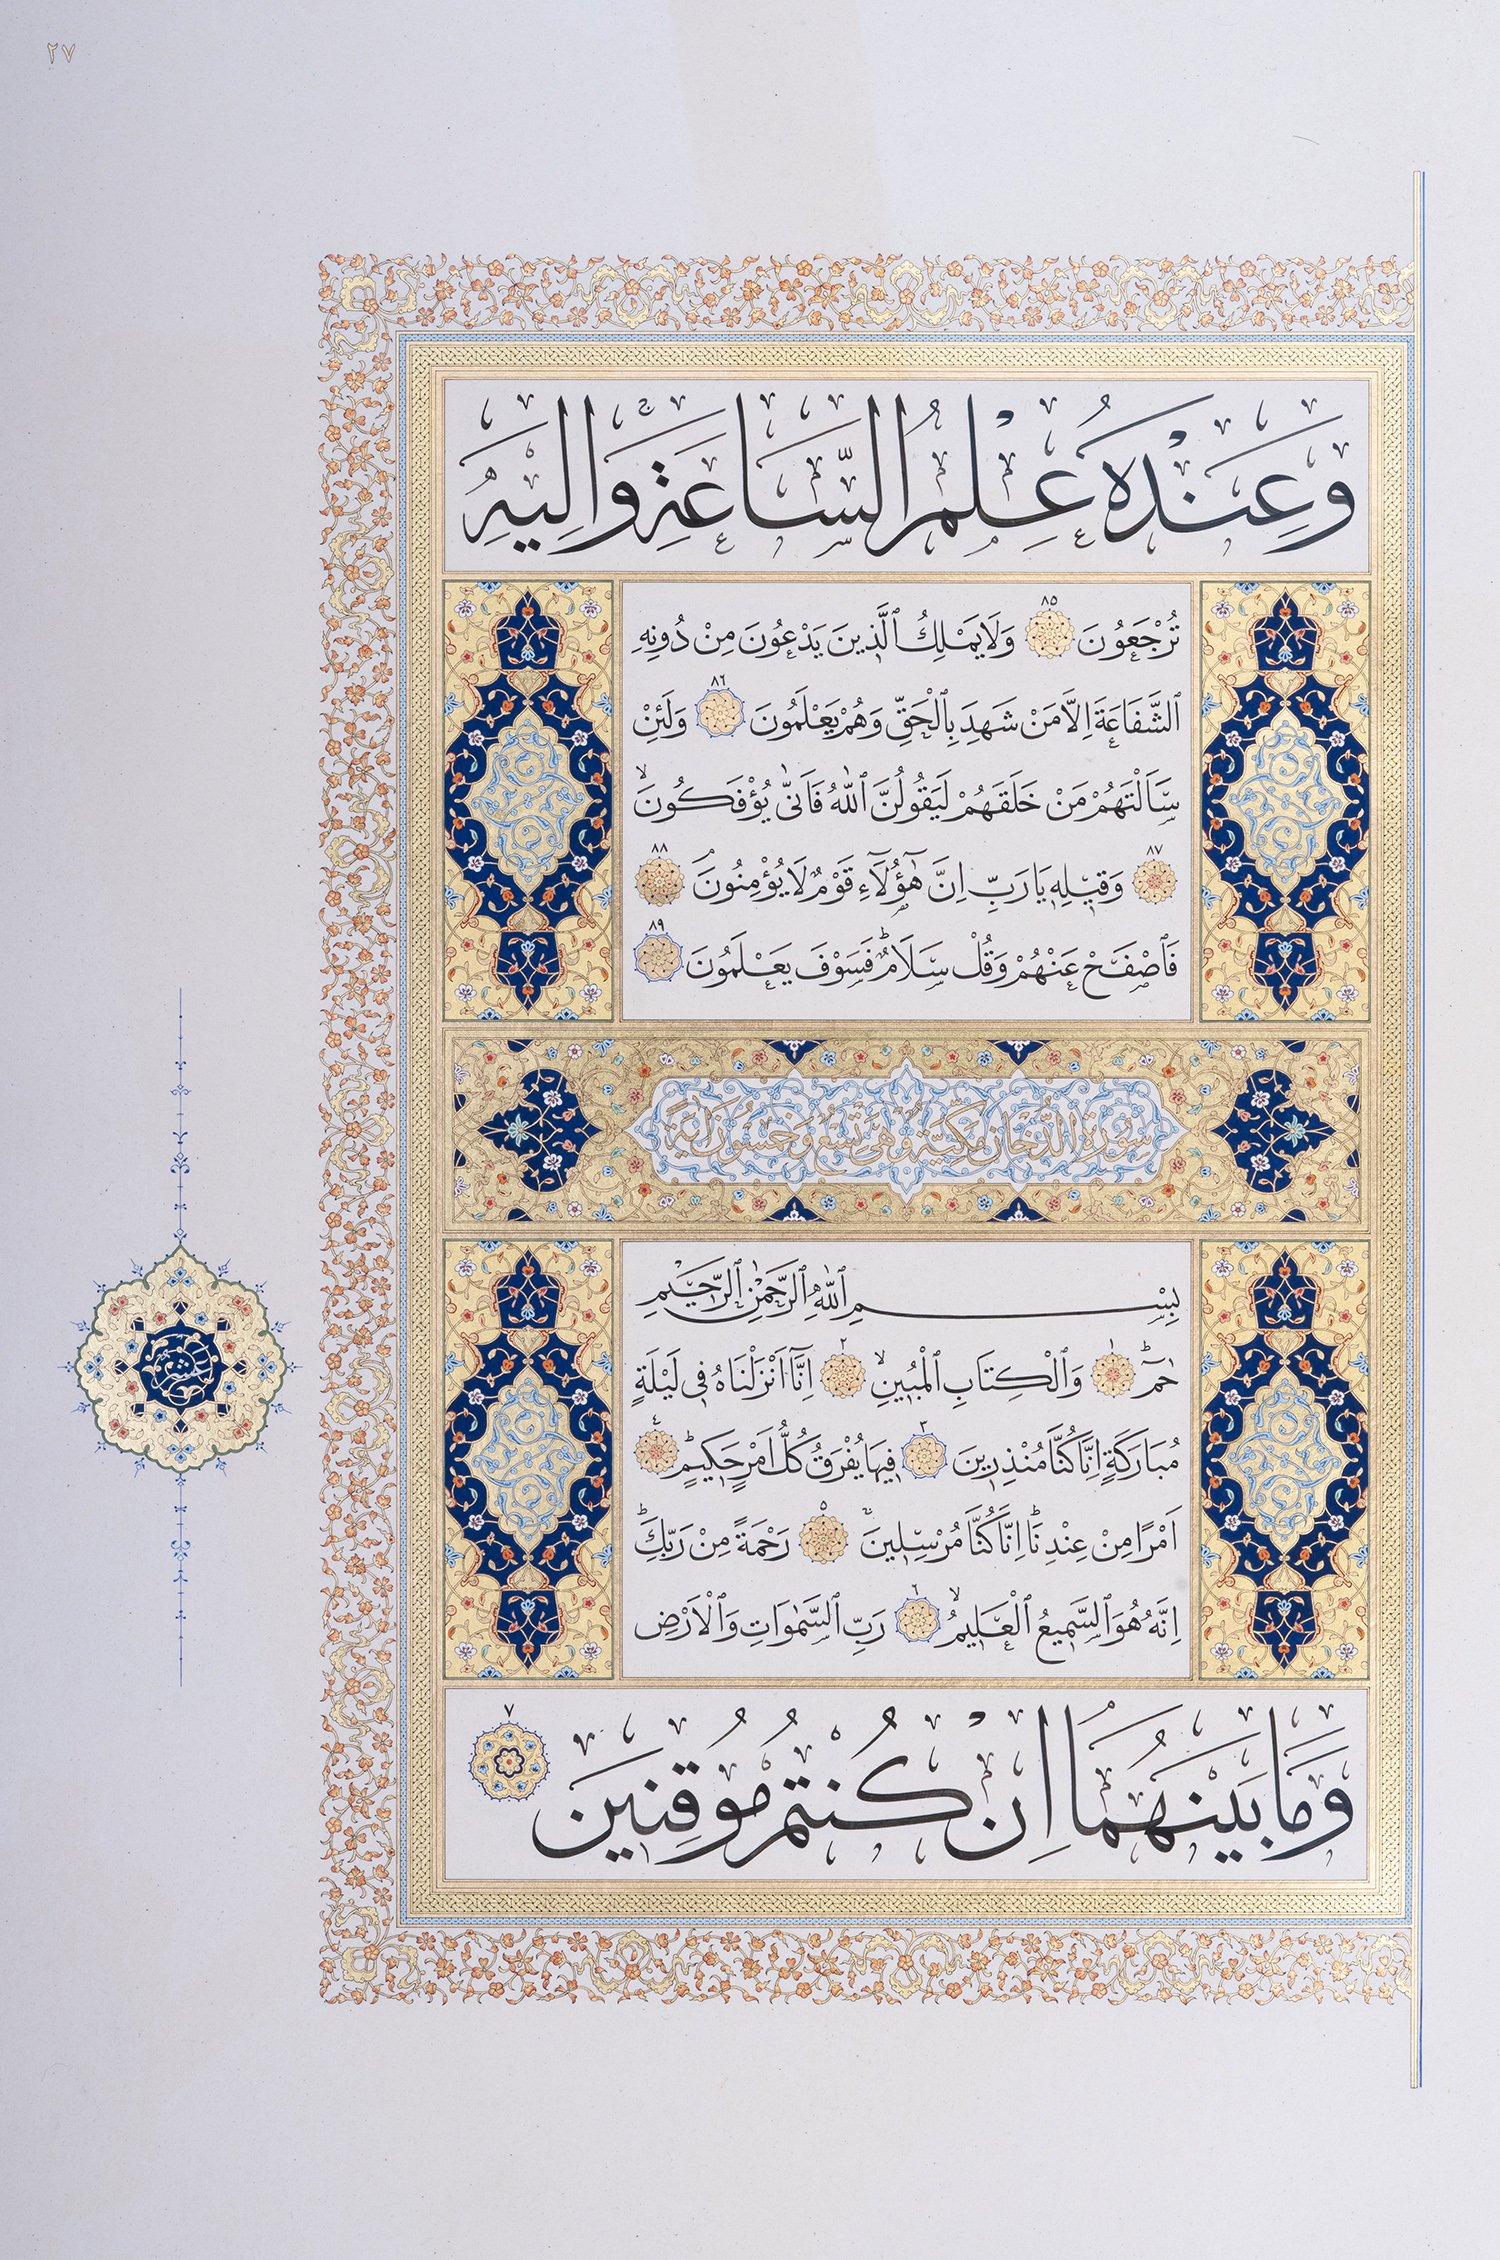 ٢٧
وَعِنْدَهُ عِلْمُ السَّاعَةِ وَاِلَيْهِ
تُرْجَعُونَ ٨٥ وَلَا يَمْلِكُ ٱلَّذِينَ يَدْعُونَ مِنْ دُونِهِ
ٱلشَّفَاعَةَ اِلَّا مَنْ شَهِدَ بِٱلْحَقِّ وَهُمْ يَعْلَمُونَ ٨٦ وَلَئِنْ
سَاَلْتَهُمْ مَنْ خَلَقَهُمْ لَيَقُولُنَّ ٱللّٰهُ فَاَنّٰى يُؤْفَكُونَۙ
٨٧ وَقِيلِهِ يَا رَبِّ اِنَّ هٰٓؤُلَٓاءِ قَوْمٌ لَا يُؤْمِنُونَۘ ٨٨
فَٱصْفَحْ عَنْهُمْ وَقُلْ سَلَامٌۜ فَسَوْفَ يَعْلَمُونَ ٨٩
سُورَةُ الدُّخَانِ مَكِّيَّةٌ وَهِيَ تِسْعٌ وَخَمْسُونَ اٰيَةً
بِسْمِ ٱللّٰهِ ٱلرَّحْمٰنِ ٱلرَّحِيمِ
حٰمٓۜ ١ وَٱلْكِتَابِ ٱلْمُبِينِۙ ٢ اِنَّٓا اَنْزَلْنَاهُ فِي لَيْلَةٍ
مُبَارَكَةٍ اِنَّا كُنَّا مُنْذِرِينَ ٣ فِيهَا يُفْرَقُ كُلُّ اَمْرٍ حَكِيمٍۜ ٤
اَمْرًا مِنْ عِنْدِنَاۜ اِنَّا كُنَّا مُرْسِلِينَۚ ٥ رَحْمَةً مِنْ رَبِّكَۜ
اِنَّهُ هُوَ ٱلسَّمِيعُ ٱلْعَلِيمُۙ ٦ رَبِّ ٱلسَّمٰوَاتِ وَٱلْاَرْضِ
وَمَا بَيْنَهُمَاۢ اِنْ كُنْتُمْ مُوقِنِينَ ٧